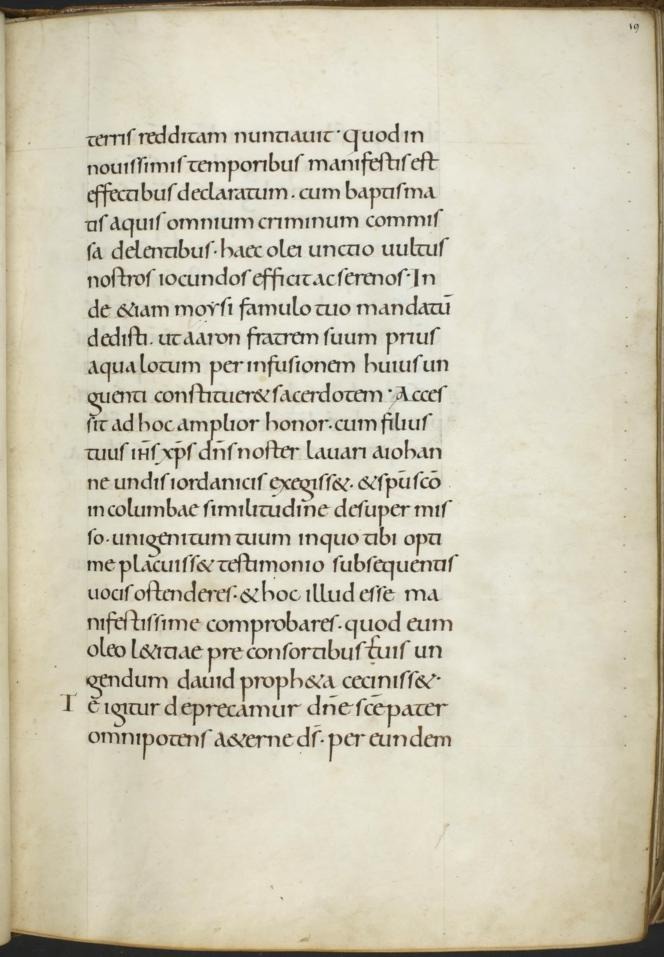 19
terris redditam nuntiavit· quod in
novissimis temporibus manifestis est
effectibus declaratum· cum baptisma
tis aquis omnium criminum commis
sa delentibus· haec olei unctio uultus
nostros iocundos efficit ac serenos· In
de &iam moysi famulo tuo mandatū
dedisti. ut aaron fratrem suum prius
aqua lotum per infusionem huius un
guenti constituer& sacerdotem· Acces
sit ad hoc amplior honor· cum filius
tuus ihs xp̄s dn̄s noster lavari aiohan
ne undis iordanicis exegiss&· & sp̄u sc̄o
in columbae similitudine desuper mis
so· unigenitum tuum in quo tibi opti
me placuiss& testimonio subsequentis
uocis ostenderes· & hoc illud esse ma
nifestissime comprobares· quod eum
oleo l&itiae pre consortibus tuis un
gendum david proph&a ceciniss&·
Te igitur deprecamur dn̄e sc̄e pater
omnipotens a&erne ds̄· per eundem